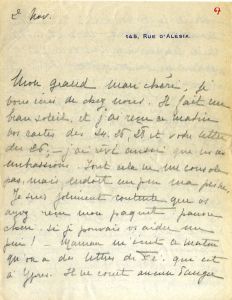 2 Nov.
9
148, RUE D'ALESIA.
Mon grand mon chéri, si
loin de chez nous. Il fait un
beau soleil, et j'ai reçu ce matin
vos cartes des 24, 25, 28 et votre lettre
des 26, — j'ai rêvé aussi que vous
embrassions. Tout cela ne me console
pas, mais endort un peu ma peine.
Je suis joliment contente que vous
ayez reçu mon paquet pauvre
cher. si je pouvais vous aider un
peu! Maman m'écrit ce matin
qu'on a des lettres de qui est
à Ypres. Il ne court aucun danger